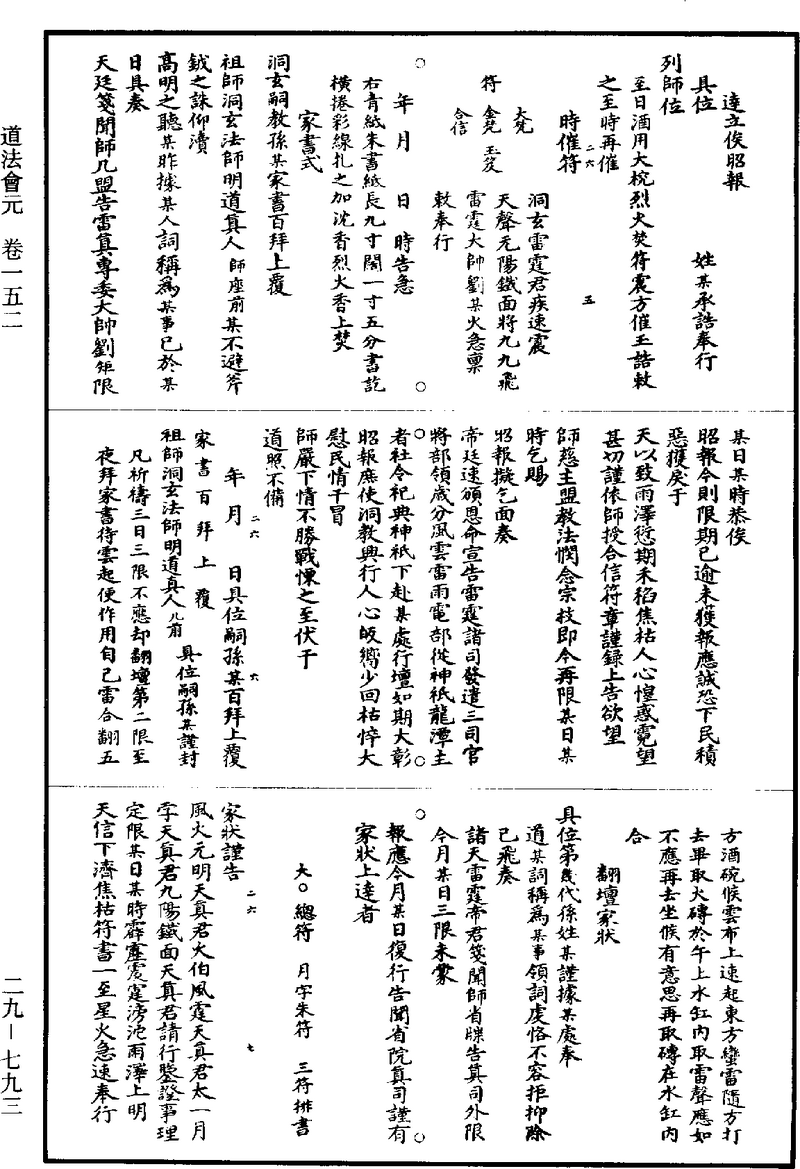 道法會元　卷一五二
二九－七九三
達立俟昭報
具位　　　姓某承誥奉行
列師位
至日酒用大梡烈火焚符震方催玉誥敕
之至時再催
二六
時催符
五
大梵
符　金梵　玉笈
合信
洞玄雷霆君疾速震
天聲元陽鐵面將九九飛
雷霆大帥劉某火急稟
敕奉行
年　月　日　時告急
右青紙朱書紙長九寸闊一寸五分書訖
橫捲彩線扎之加沈香烈火香上焚
家書式
洞玄嗣教孫某家書百拜上覆
祖師洞玄法師明道真人師座前某不避斧
鉞之誅仰瀆
高明之聽某昨據某人詞稱為某事已於某
日具奏
天廷箋聞師几盟告雷真專委大帥劉矩限
某日某時恭俟
昭報今則限期已逾未獲報應誠恐下民積
惡獲戾于
天以致雨澤愆期禾稻焦枯人心惶惑霓望
甚切謹依師授合信符章謹錄上告欲望
師慈主盟教法憫念宗枝即令再限某日某
時乞賜
昭報擬乞面奏
帝廷速頒恩命宣告雷霆諸司發遣三司官
將部領歲分風雲雷雨電部從神祇龍潭主
者社令祀典神祇下赴某處行壇如期大彰
昭報庶使洞教興行人心皈嚮少回枯悴大
慰民情干冒
師嚴下情不勝戰慄之至伏干
道照不備
二六
年　月　日具位嗣孫某百拜上覆
六
家　書　百　拜　上　覆
祖師洞玄法師明道真人几前
具位嗣孫某謹封
凡祈禱三日三限不應却翻壇第二限至
夜拜家書待雲起便作用自己雷合翻五
方酒碗候雲布上速起東方蠻雷隨方打
去畢取火磚於午上水缸內取雷聲應如
不應再去坐候有意思再取磚在水缸內
合
翻壇家狀
具位第幾代孫姓某謹據某處奉
道某詞稱為某事領詞虔恪不容拒抑除
已飛奏
諸天雷霆帝君箋聞師省牒告真司外限
今月某日三限未蒙
報應今月某日復行告聞省院真司謹有
家狀上達者
大〇總符　月字朱符　三符拼書
家狀謹告
二六
七
風火元明天真君大伯風霆天真君太一月
孛天真君九陽鐵面天真君請行鑒證事理
定限某日某時霹靂震霆滂沱雨澤上明
天信下濟焦枯符書一至星火急速奉行